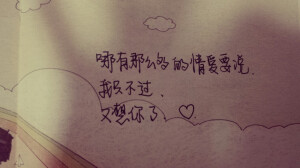 哪有那么多的情爱要说，
我只不过，
又想你了、♡